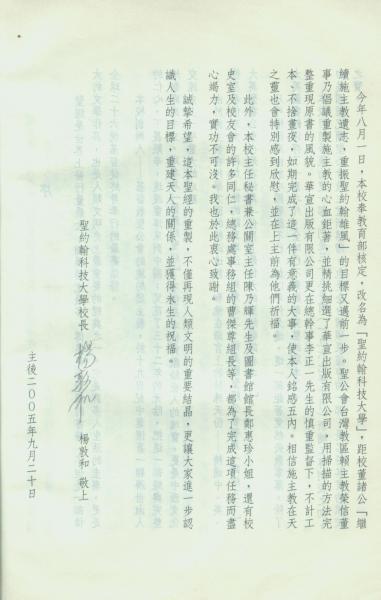 今年八月一日，本校奉教育部核定，改名為「聖約翰科技大學」，距校董諸公「繼
續施主教遺志，重振聖約翰雄風」的目標又邁前一步。聖公會台灣教區賴主教榮信董
事乃倡議重製施主教的心血鉅著，並精挑細選了華宣出版有限公司，用掃描的方法完
整重現原書的風貌。華宣出版有限公司更在總幹事李正一先生的慎重監督下，不計工
本、不捨晝夜，如期完成了這一件有意義的大事，使本人銘感五內。相信施主教在天
之靈也會特別感到欣慰，並在上主前為他們祈福。
此外，本校主任秘書兼公關室主任陳乃輝先生及圖書館館長鄭惠珍小姐，還有校
史室及校友會的許多同仁，總務處事務組的曹傑尊組長等，都為了完成這項任務而盡
心竭力，實功不可沒。我也於此衷心致謝。
誠摯希望，這本聖經的重製，不僅再現人類文明的重要結晶，更讓大家進一步認
識人生的目標，重建天人的關係，並獲得永生的祝福。
聖約翰科技大學校長
楊敦和 敬上
主後二00五年九月二十日